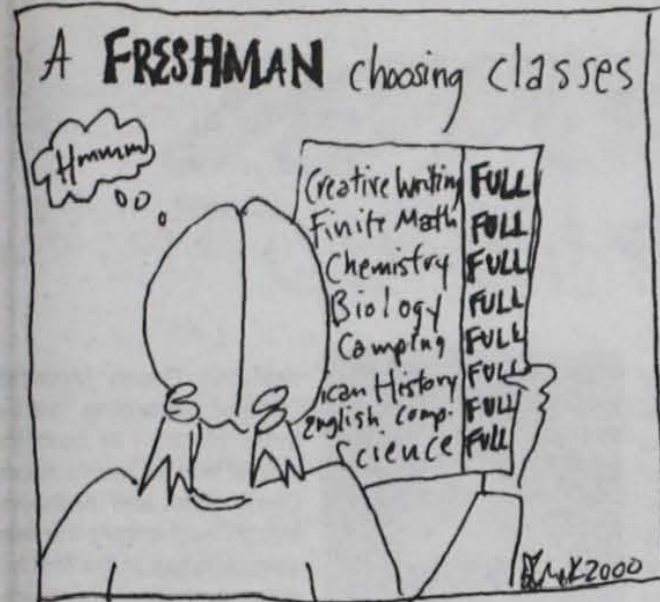 A FRESHMAN choosing classes
Hmmmm
Creative Writing FULL
Finite Math FULL
Chemistry FULL
Biology FULL
Camping FULL
ican History FULL
English Comp. FULL
Science FULL
2000